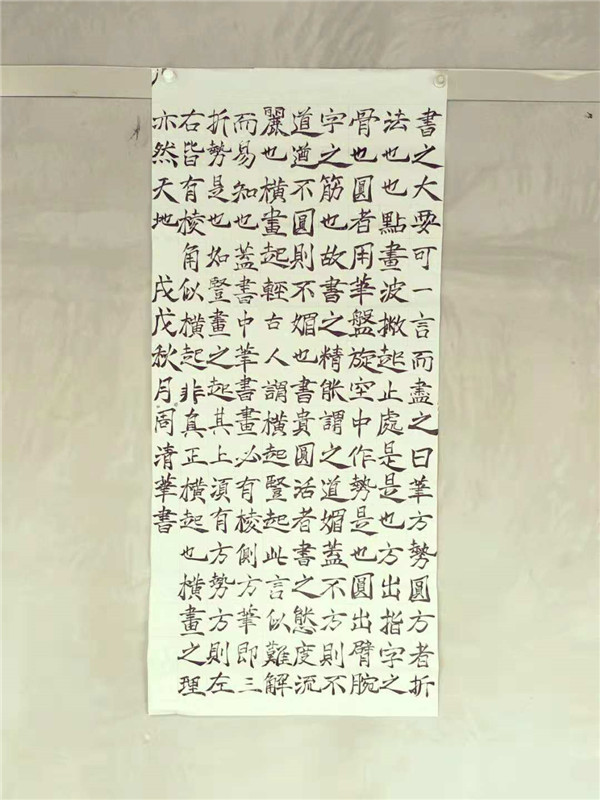 書之大要可一言而盡之曰筆方勢圓方者折
法也也點畫波撇起止處是是也方出指字之
骨也圓者用筆盤旋空中作勢是也圓出臂腕
字之筋也故書之精能謂之道媚蓋不方則不
道遒不圓則不媚也書貴圓活者書之態度流
麗也橫畫起輕古人謂橫起豎起此言似難解
而易知也蓋書中筆書畫必有棱側方筆即三
折勢是也如豎畫之起其上須有方勢方則左
右皆有棱角似橫起非真正橫起也橫畫之理
亦然天地 戌戊秋月周清華書